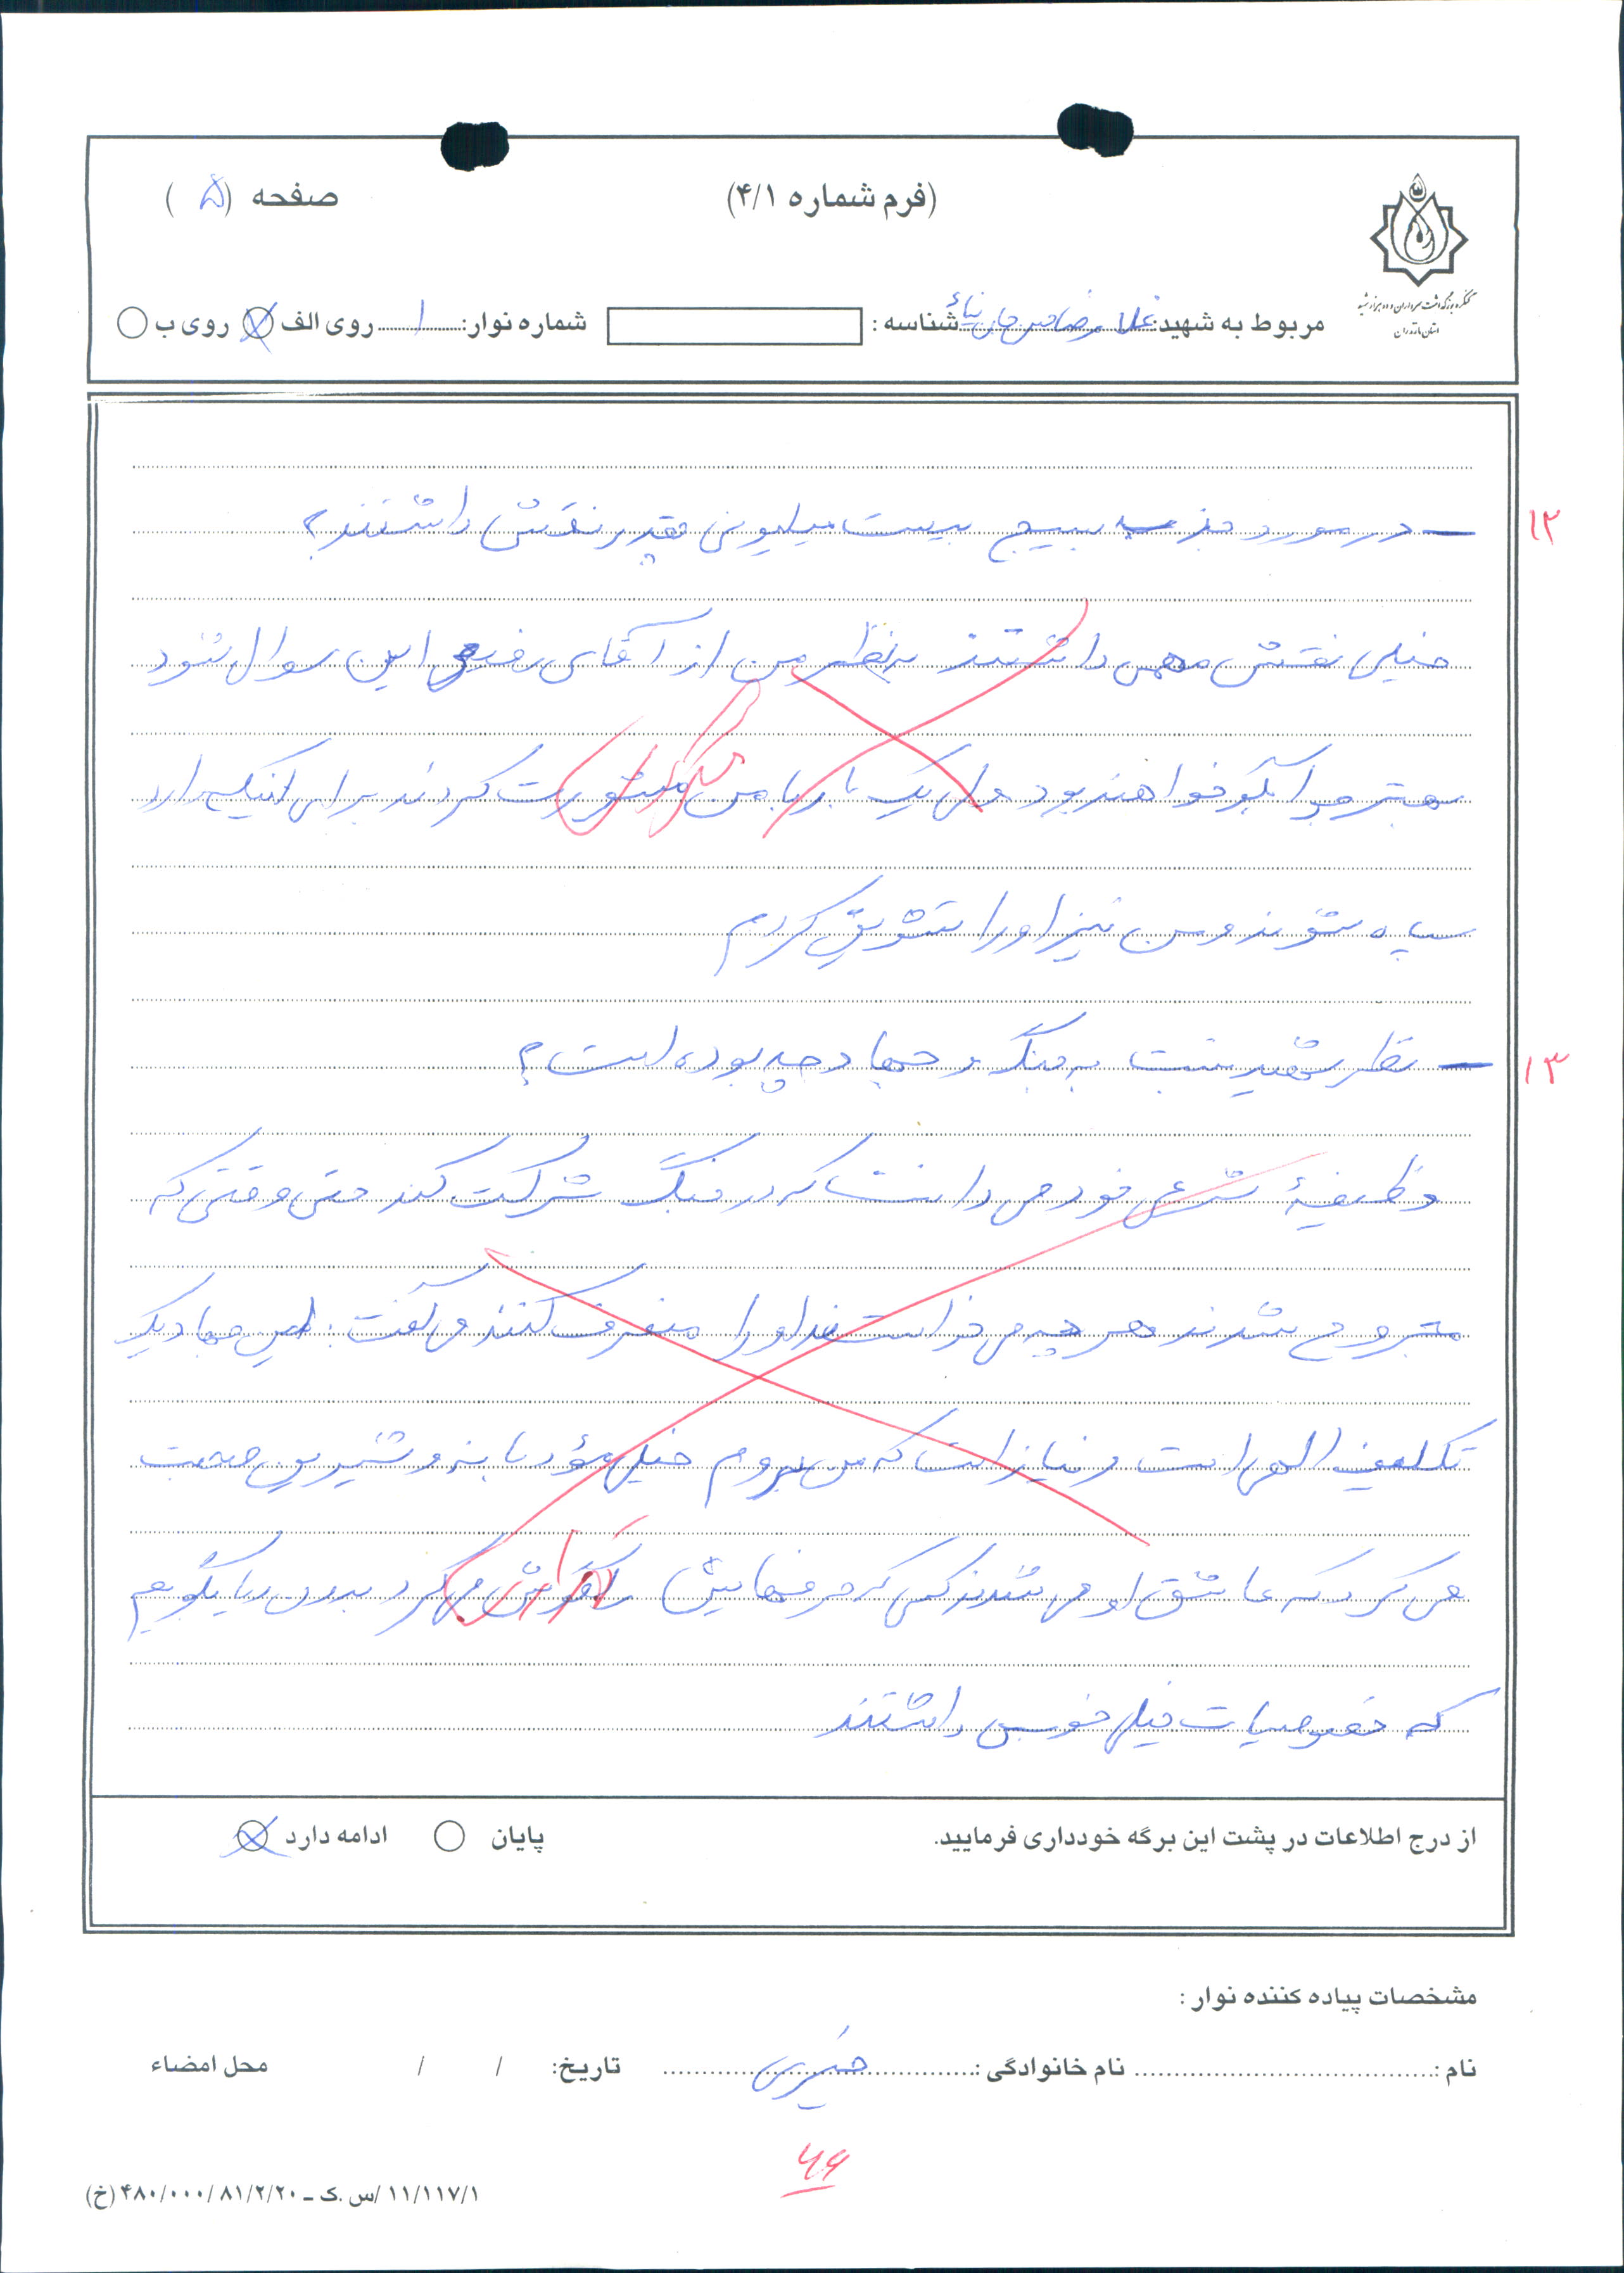 (فرم شماره ۴/۱)
صفحه (۵)
کنگره بزرگداشت سرداران و ده هزار شهید
استان مازندران
مربوط به شهید: غلامرضا شناسه : شماره نوار: ۱ روی الف روی ب
۱۲
– در مورد جذب بسیج بیست میلیونی چقدر نقش داشتند؟
خیلی نقش مهمی داشتند بنظر من از آقای رفیعی این سوال شود
بهتر جوابگو خواهند بود ولی یک بار با من مشورت کردند برای اینکه وارد
سپاه شوند و من نیز او را تشویق کردم
۱۳
– نظر شهید نسبت به جنگ و جهاد چه بوده است؟
وظیفهٔ شرعی خود می دانست که در جنگ شرکت کند حتی وقتی که
مجروح شدند هر چه می خواستند او را منصرف کنند می گفت: این جهاد یک
تکلیف الهی است و نیاز است که من بروم خیلی مؤدبانه و شیرین صحبت
می کرد که عاشق او می شدند کسی که حرفهایش را گوش می کرد بدون ریا بگویم
که خصوصیات خیلی خوبی داشتند
از درج اطلاعات در پشت این برگه خودداری فرمایید. پایان ادامه دارد
مشخصات پیاده کننده نوار :
نام : نام خانوادگی : تاریخ: / / محل امضاء
۶۶
۱۱/۱۱۷/۱ /س.ک – ۴۸۰/۰۰۰/۸۱/۲/۲۰ (خ)